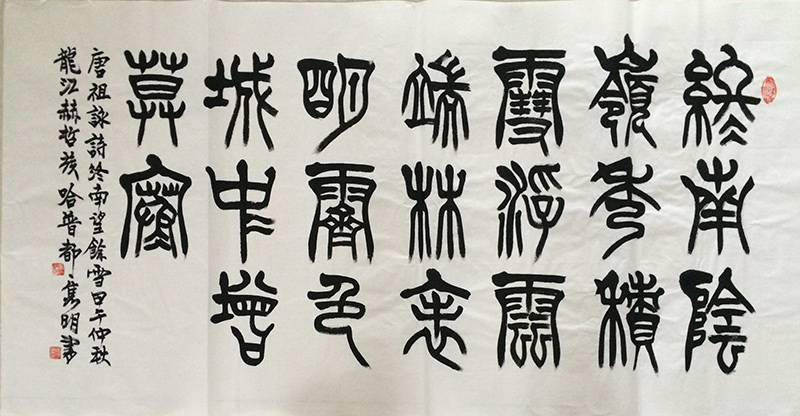 終南陰
嶺秀積
雪浮雲
端林表
明霽色
城中增
莫寒
唐祖詠詩終南望餘雪甲午仲秋
龍江赫哲族哈普都·隽明書